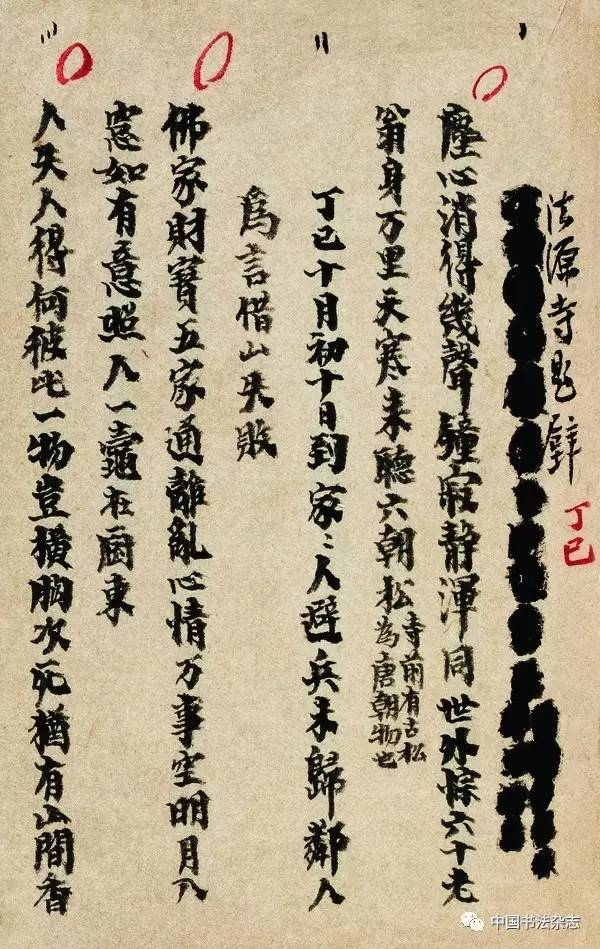 法源寺题壁
丁巳
塵心消得幾聲鐘寂静渾同世外悰六十老
翁身万里天寒来聽六朝松寺前有古松
為唐朝物也
丁巳十月初十日到家〻人避兵未歸鄰人
爲言借山失敗
佛家財寶五家通離亂心情万事空明月入
窓如有意照人一龕在厨東
人失人得何彼此一物豈横胸次死猶有山間香
中国书法杂志